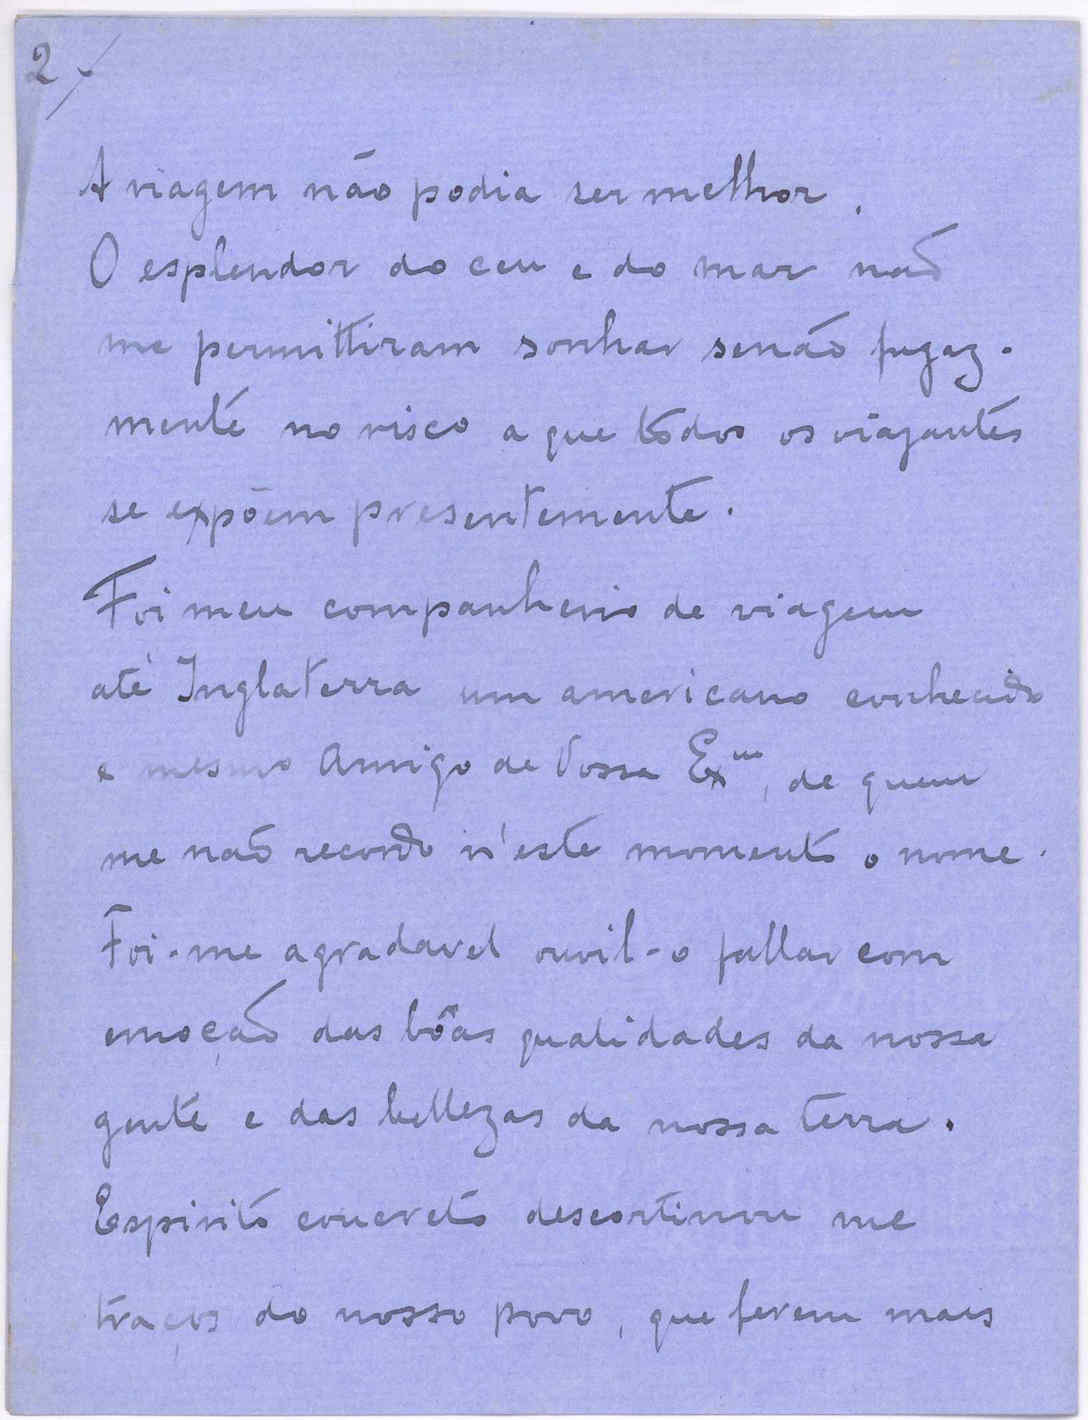 2
A viagem não podia ser melhor.
O esplendor do ceu e do mar não
me permittiram sonhar senão fugaz-
mente no risco a que todos os viajantes
se expõem presentemente.
Foi meu companheiro de viagem
até Inglaterra um americano conhecido
e mesmo Amigo de Vossa Exma, de quem
me não recordo n'este momento o nome.
Foi-me agradavel ouvil-o fallar com
emoção das bôas qualidades da nossa
gente e das bellezas da nossa terra.
Espirito concreto descortinou me
traços do nosso povo, que ferem mais